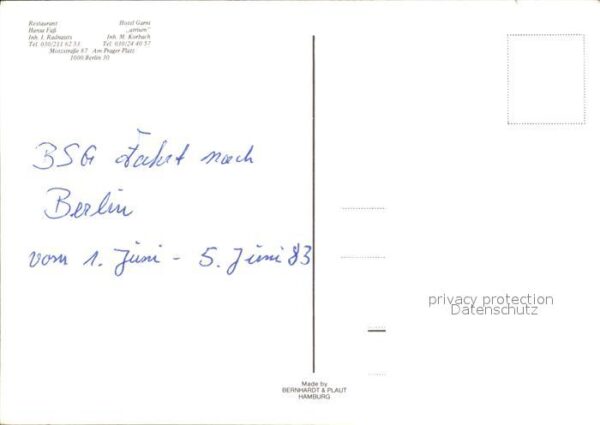 Restaurant
Hansa Faß
Tel. 030/211 62 53
Hotel Garni
Inh. M. Korbach
Tel. 030/24 40 57
Motzstraße 87 Am Prager Platz
1000 Berlin 30
BSG Fahrt nach
Berlin
vom 1. Juni - 5. Juni 83
privacy protection
Datenschutz
Made by
BERNHARDT & PLAUT
HAMBURG